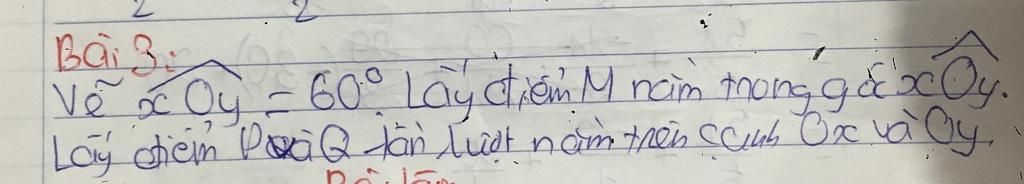 2 2
Bài 3:
Vẽ xOy = 60° Lấy điểm M nằm trong góc xOy.
Lấy điểm P và Q lần lượt nằm trên cạnh Ox và Oy.